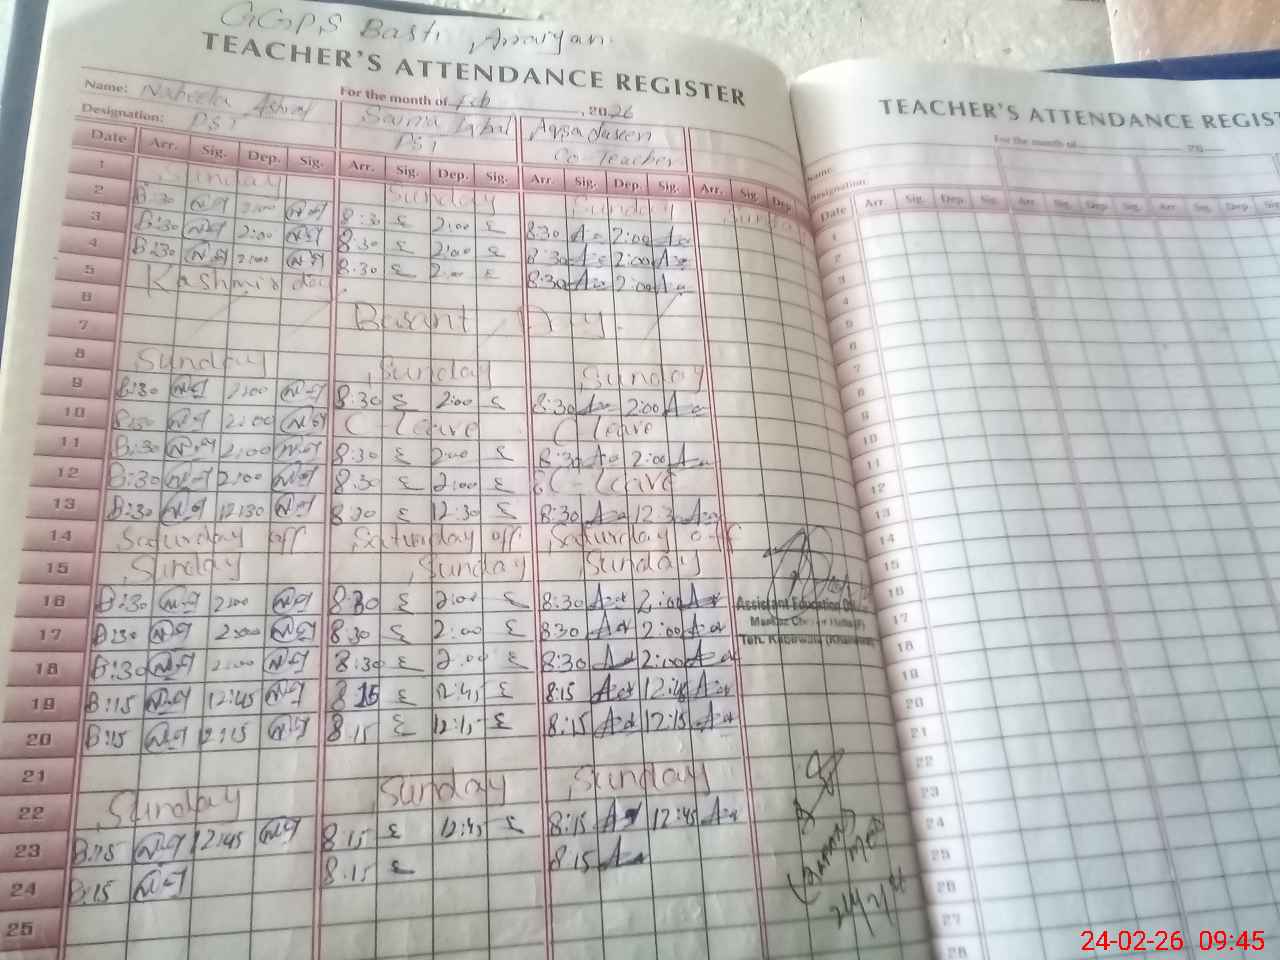 G.G.P.S Basti Arraiyan.
TEACHER'S ATTENDANCE REGISTER
For the month of Feb, 2026
Name: Nabeela Ashraf Saima Iqbal Aqsa
Designation: PST PST Co-Teacher
Date Arr. Sig. Dep. Sig. Arr. Sig. Dep. Sig. Arr. Sig. Dep. Sig. Arr. Sig. Dep.
1 Sunday Sunday Sunday
2 8:30 2:00 8:30 2:00 8:30 2:00
3 8:30 2:00 8:30 2:00 8:30 2:00
4 8:30 2:00 8:30 2:00 8:30 2:00
5 Kashmir day
6 Basant Day.
7
8 Sunday Sunday Sunday
9 8:30 2:00 8:30 2:00 8:30 2:00
10 8:30 2:00 C-Leave C Leave
11 8:30 2:00 8:30 2:00 8:30 2:00
12 8:30 2:00 8:30 2:00 C-Leave
13 8:30 12:30 8:30 12:30 8:30 12:30
14 Saturday off Saturday off Saturday off
15 Sunday Sunday Sunday
16 8:30 2:00 8:30 2:00 8:30 2:00
17 8:30 2:00 8:30 2:00 8:30 2:00
18 8:30 2:00 8:30 2:00 8:30 2:00
19 8:15 12:45 8:15 12:45 8:15 12:45
20 8:15 12:15 8:15 12:15 8:15 12:15
21
22 Sunday Sunday Sunday
23 8:15 12:45 8:15 12:45 8:15 12:45
24 8:15 8:15 8:15
25
Assistant Education
Teh. Kabirwala
TEACHER'S ATTENDANCE REGIST
For the month of 20
Name:
Designation:
Date Arr. Sig. Dep. Sig. Arr. Sig. Dep. Sig. Arr. Sig. Dep.
1
2
3
4
5
6
7
8
9
10
11
12
13
14
15
16
17
18
19
20
21
22
23
24
25
26
27
28
24-02-26 09:45